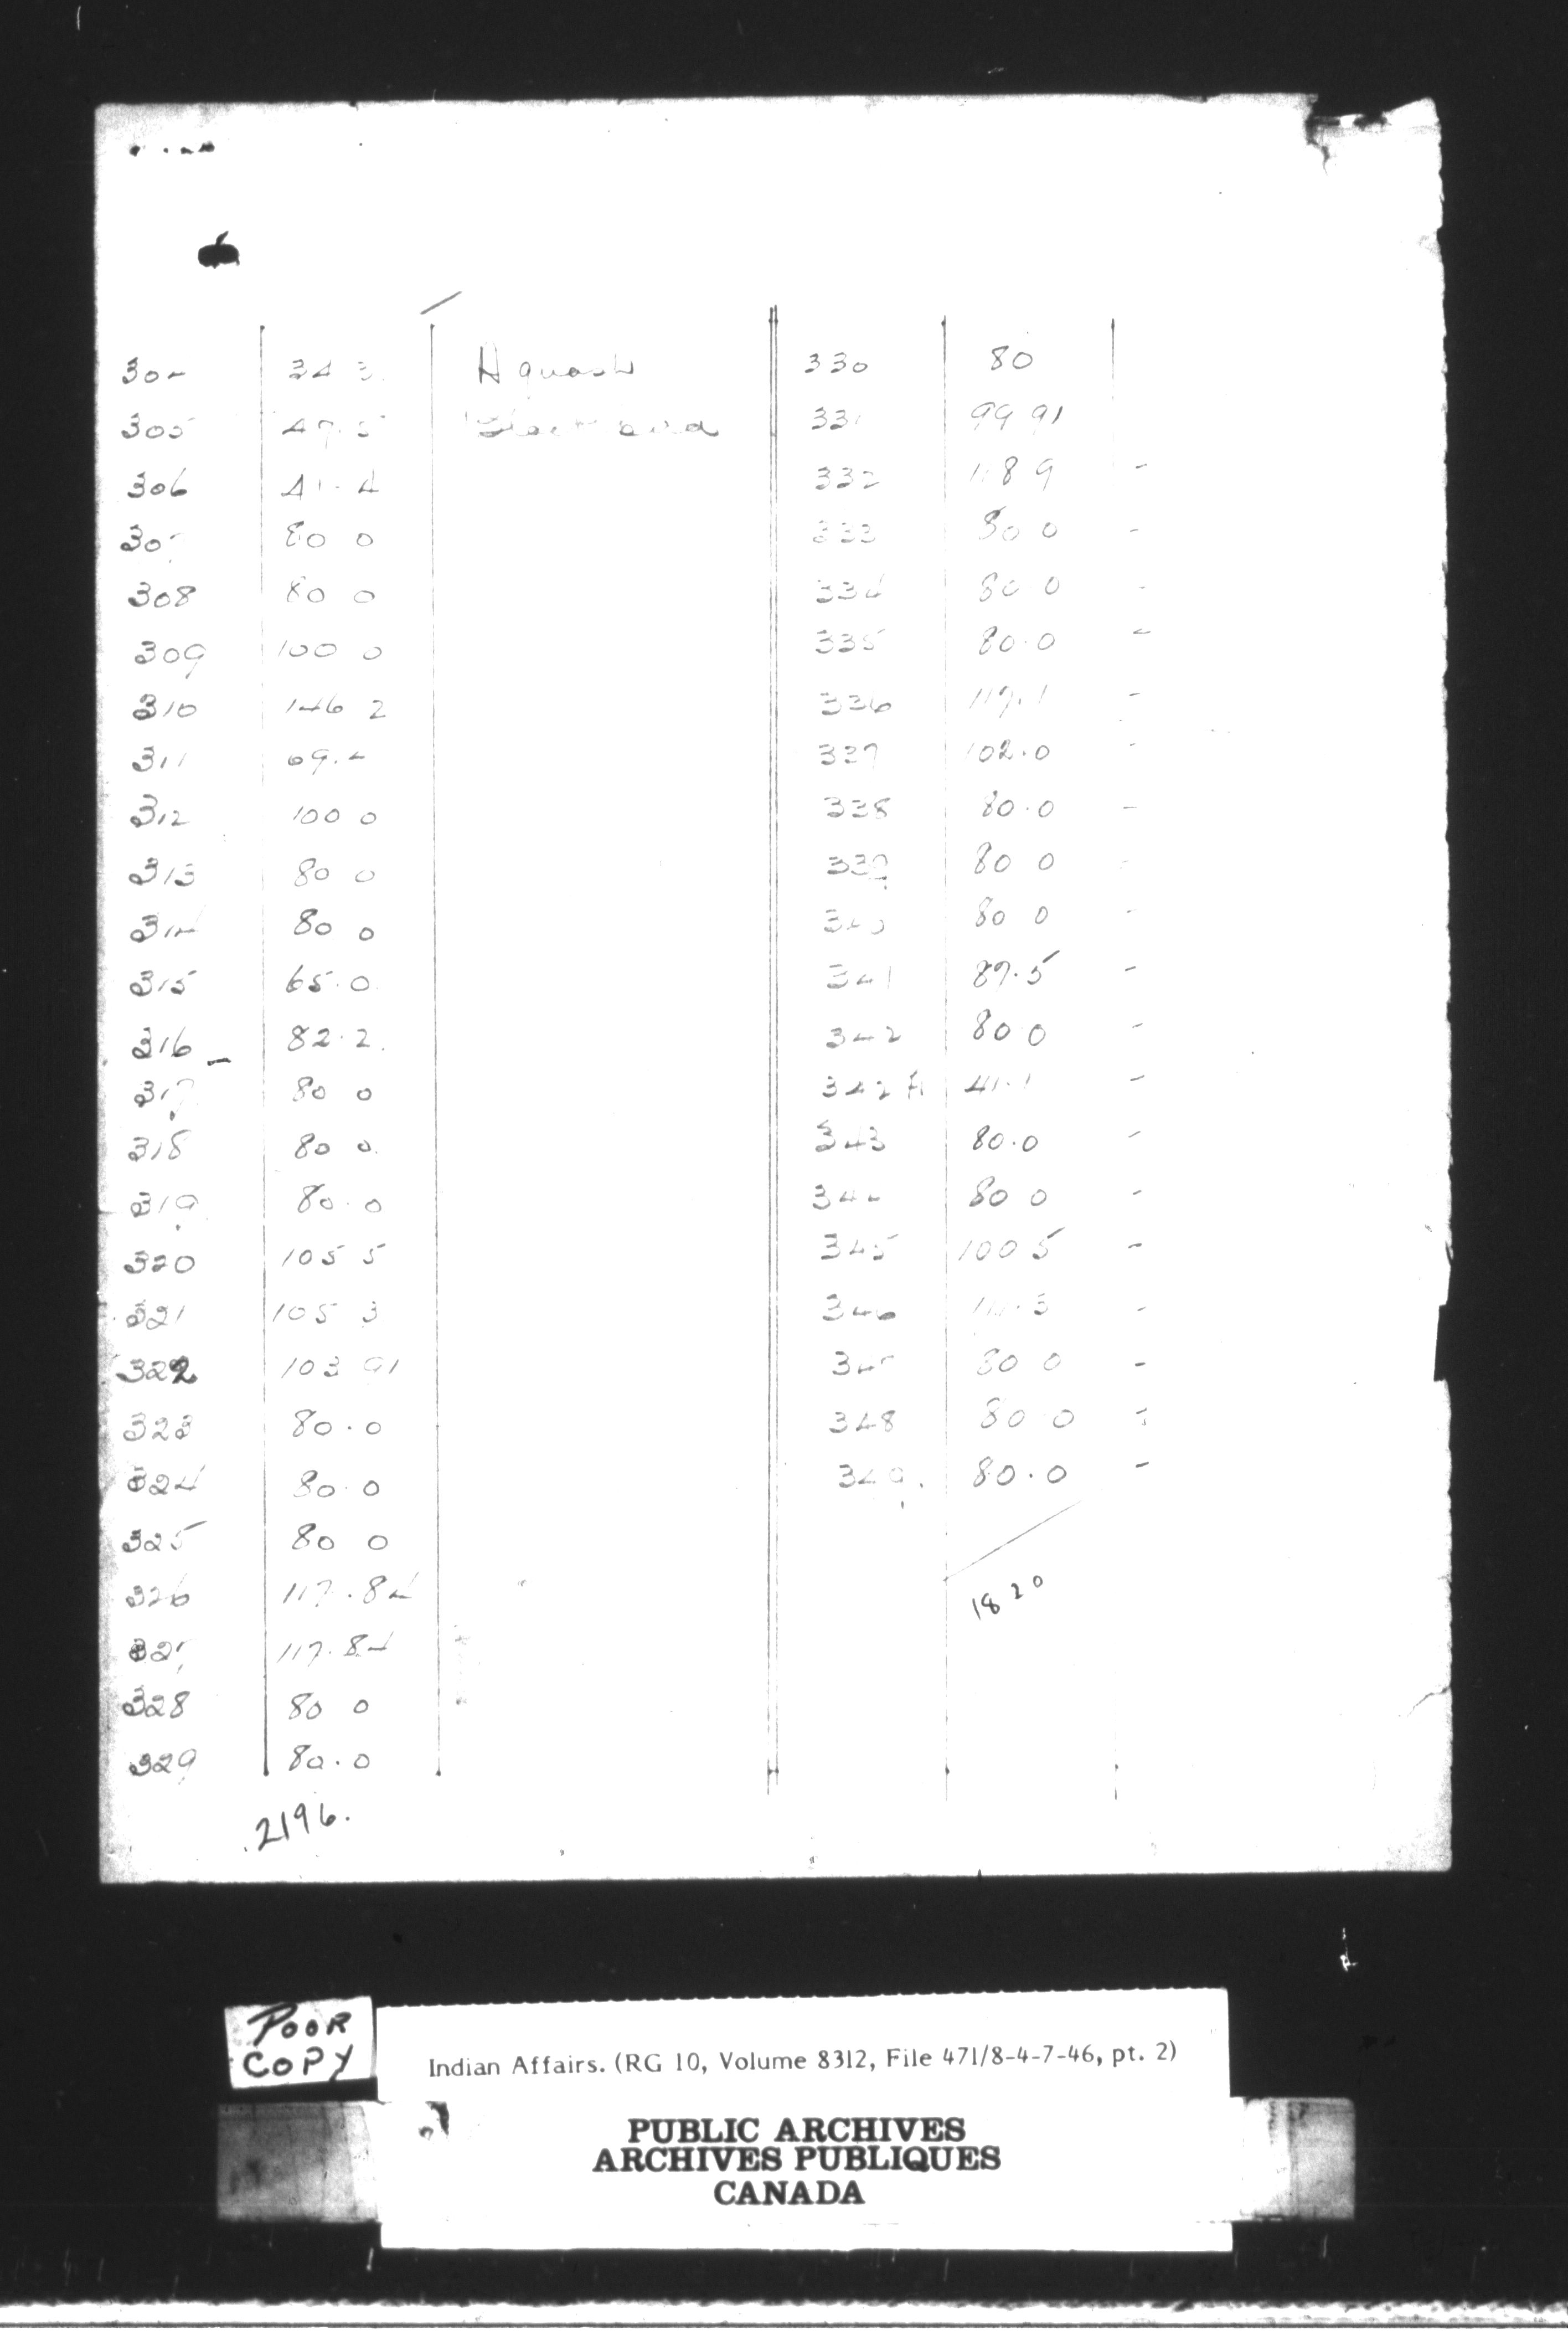 304 34 3. Aquash
305 47.5 Blackbird
306 41.4
307 80 0
308 80 0
309 100 0
310 146 2
311 69.4
312 100 0
313 80 0
314 80 0
315 65.0
316 82.2.
317 80 0
318 80 0.
319 80.0
320 105 5
321 105 3
322 103 91
323 80.0
324 80.0
325 80 0
326 117.84
327 117.84
328 80 0
329 80.0
2196.
330 80
331 99 91
332 118 9 -
333 80 0 -
334 80 0 -
335 80.0 -
336 117.1 -
337 102.0 -
338 80.0 -
339 80 0 -
340 80 0 -
341 87.5 -
342 80.0 -
342A 41.1 -
343 80.0 -
344 80 0 -
345 100 5 -
346 111.3 -
347 80 0 -
348 80 0 -
349. 80.0 -
18 20
POOR
COPY
Indian Affairs. (RG 10, Volume 8312, File 471/8-4-7-46, pt. 2)
PUBLIC ARCHIVES
ARCHIVES PUBLIQUES
CANADA